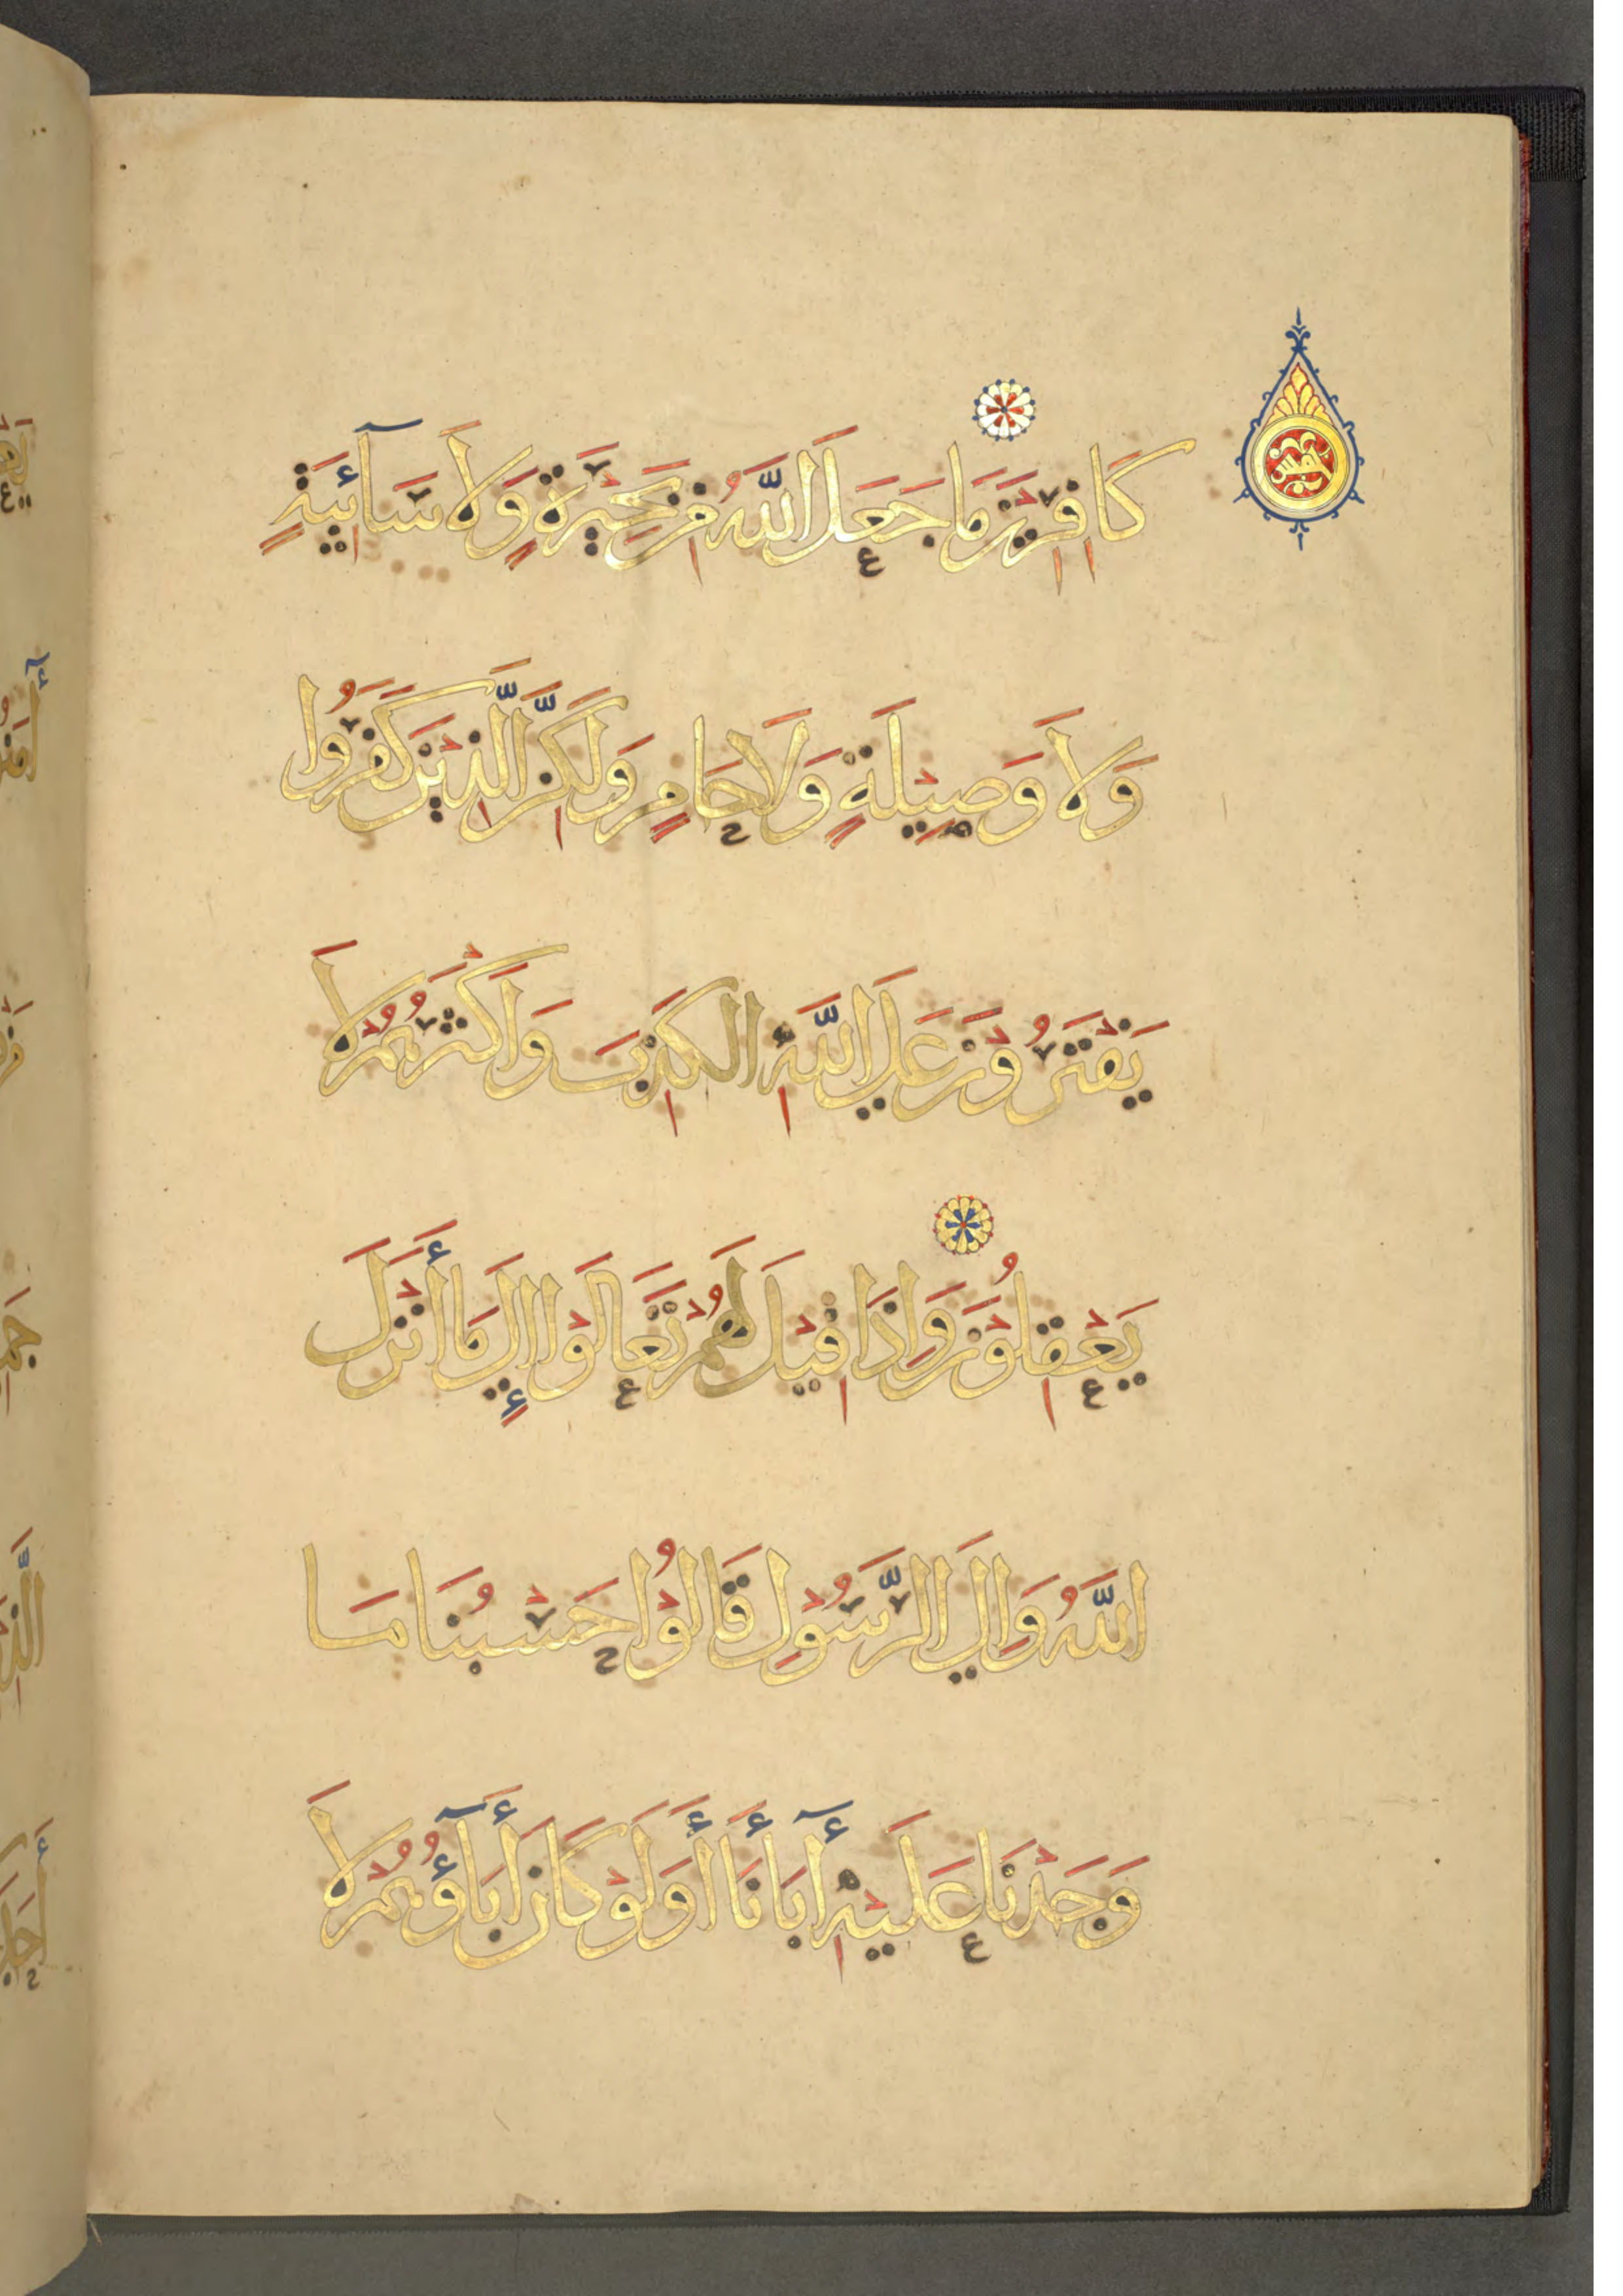 كَافِرِيْنَ مَا جَعَلَ اللَّهُ مِنْ بَحِيْرَةٍ وَلَا سَآئِبَةٍ
وَلَا وَصِيْلَةٍ وَلَا حَامٍ وَلَكِنَّ الَّذِيْنَ كَفَرُوا
يَفْتَرُوْنَ عَلَى اللَّهِ الكَذِبَ وَاَكْثَرُهُمْ لَا
يَعْقِلُوْنَ وَاِذَا قِيْلَ لَهُمْ تَعَالَوْا اِلَى مَا أَنْزَلَ
اللَّهُ وَاِلَى الرَّسُوْلِ قَالُوْا حَسْبُنَا مَا
وَجَدْنَا عَلَيْهِ أٓبَانَا أَوَلَوْ كَانَ أٓبَاؤُهُمْ لَا